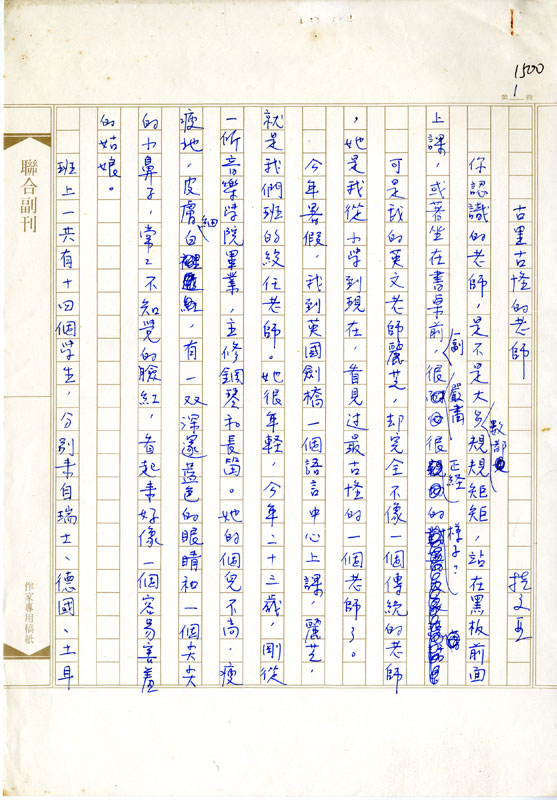 1500
第 1 頁
古里古怪的老師
你認識的老師，是不是大多數都規規矩矩，站在黑板前面
上課，或著坐在書桌前，很嚴肅、很正経的樣子？
可是我的英文老師麗芝，却完全不像一個傳統的老師
，她是我從小學到現在，看見过最古怪的一個老師了。
今年暑假，我到英國劍橋一個語言中心上課，麗芝，
就是我們班的級任老師。她很年輕，今年二十三歲，剛從
一所音樂学院畢業，主修鋼琴和長笛。她的個兒不高，瘦
瘦地，皮膚細白，有一双深邃藍色的眼睛和一個尖尖
的小鼻子，常常不知覺的臉紅，看起来好像一個容易害羞
的姑娘。
班上一共有十四個学生，分別来自瑞士、德國、土耳
聯合副刊
作家專用稿紙